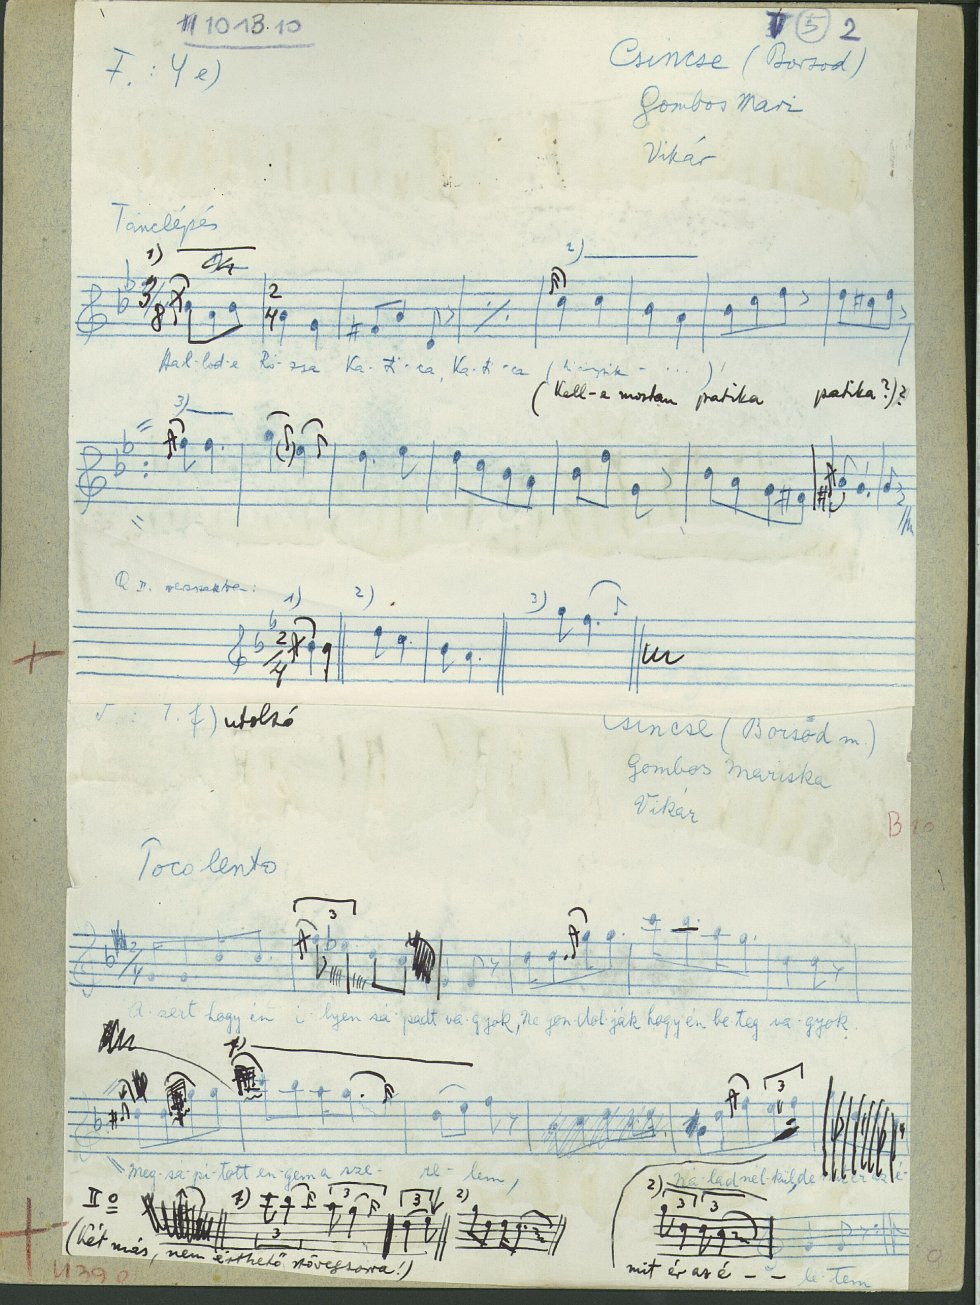 10 13.10
5 2
F. : 4 e)
Csincse (Borsod)
Gombos Mari
Vikár
Tánclépés
1)
2)
3/8
2/4
Hal-lod-e Ró-zsa Ka-ti-ca, Ka-ti-ca
(Kell-e mostan patika patika?)?
3)
II. versszakban:
1) 2) 3)
2/4
f) utolsó
Csincse (Borsod m.)
Gombos Mariska
Vikár
B 10
Poco lento
3
2/4
A-zért hogy én i-lyen sá-padt va-gyok, Ne gon-dol-ják hogy én be-teg va-gyok.
1)
3
Meg-sa-pí-tott en-gem a sze-re-lem,
Ná-lad nél-kül, de
II
1) 3 3 3 2)
2) 3 3
(két más, nem érthető szövegsorra!)
mit ér az é - -
le-tem